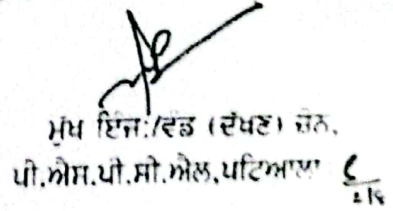 ਮੁੱਖ ਇੰਜ:/ਵੰਡ (ਦੱਖਣ) ਜ਼ੋਨ,
ਪੀ.ਐਸ.ਪੀ.ਸੀ.ਐਲ.ਪਟਿਆਲਾ